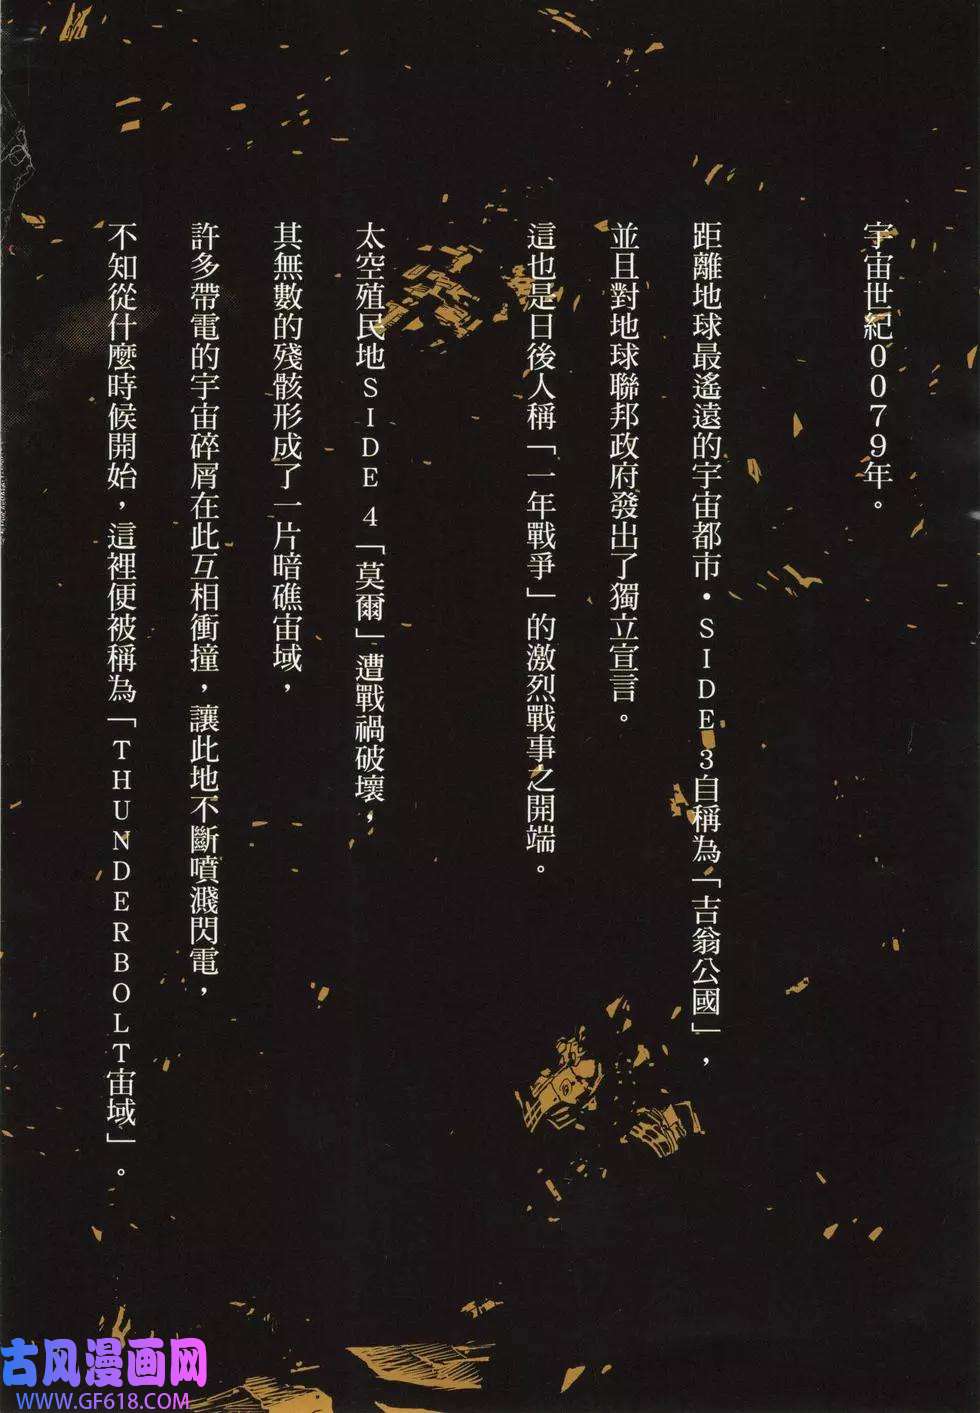 宇宙世紀0079年。
距離地球最遙遠的宇宙都市・SIDE 3自稱為「吉翁公國」，
並且對地球聯邦政府發出了獨立宣言。
這也是日後人稱「一年戰爭」的激烈戰事之開端。
太空殖民地SIDE 4「莫爾」遭戰禍破壞，
其無數的殘骸形成了一片暗礁宙域，
許多帶電的宇宙碎屑在此互相衝撞，讓此地不斷噴濺閃電，
不知從什麼時候開始，這裡便被稱為「THUNDERBOLT宙域」。
古风漫画网
WWW.GF618.COM